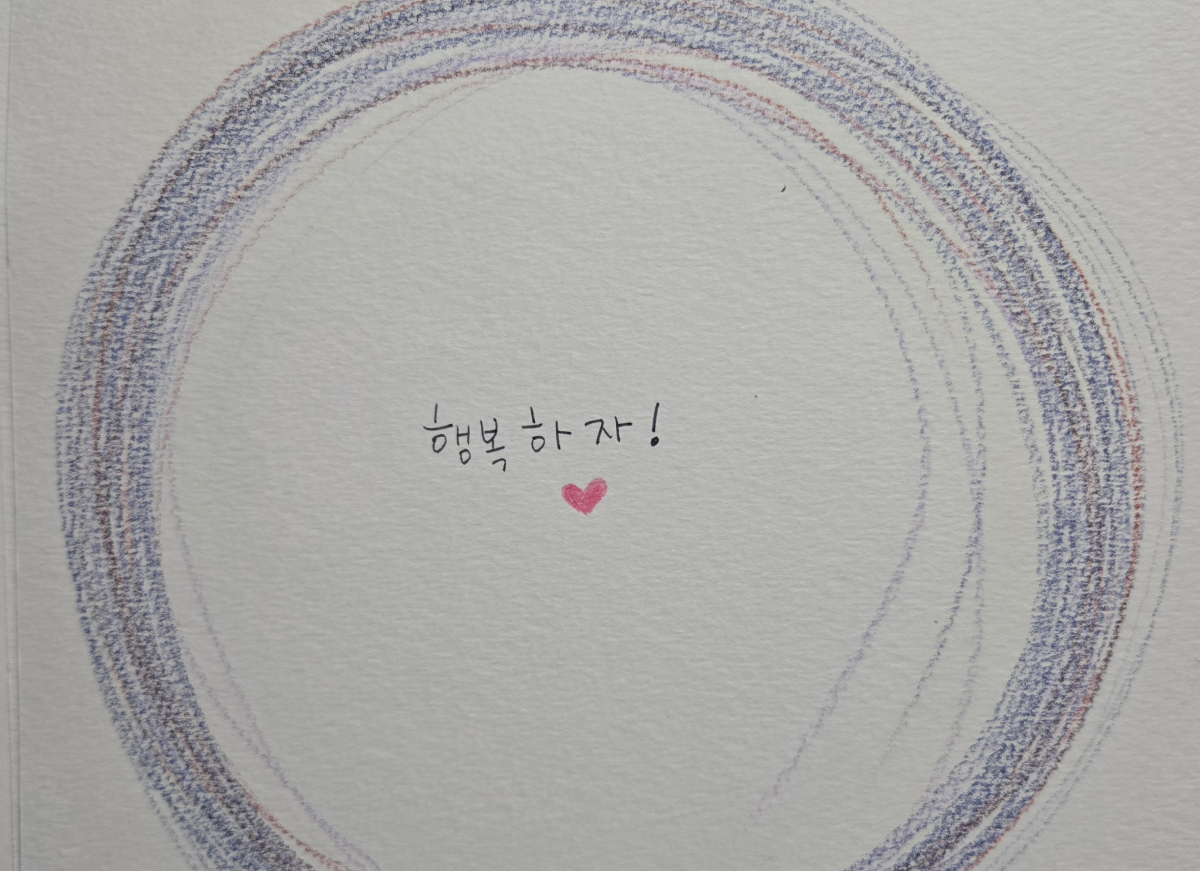 행복하자!